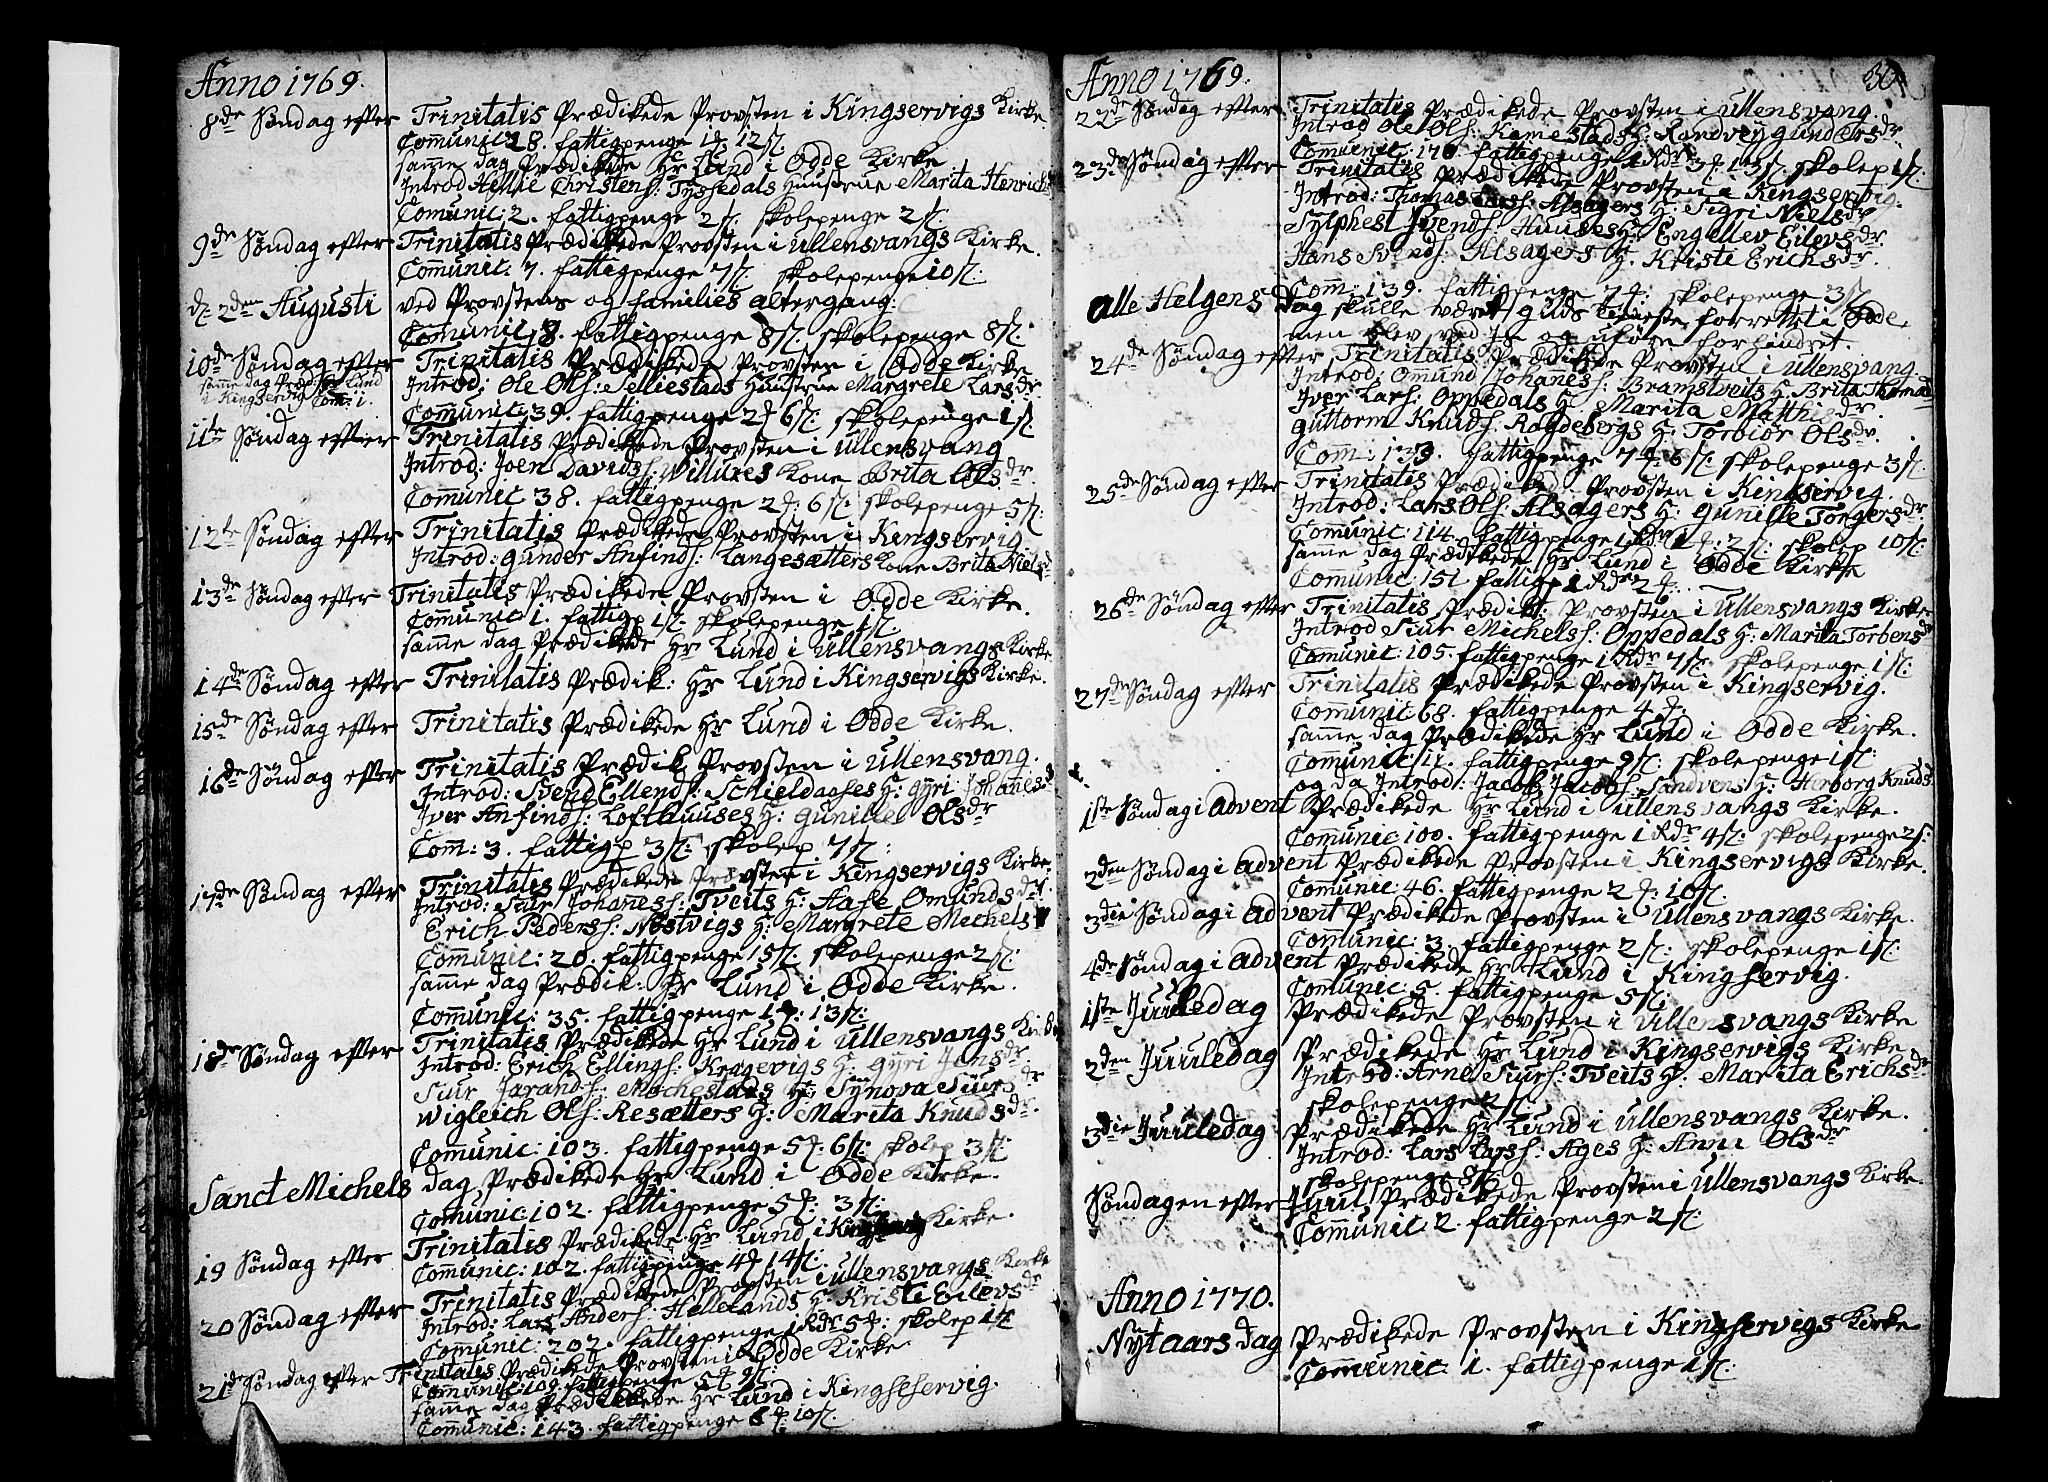 Anno 1769.
8de Søndag efter Trinitatis Prædikede Provsten i Kingservigs Kirke.
Communic 28. fattigpenge 1 12
samme dag Prædikede Hr Lund i Odde Kirke
Introd Christens: Tyssedals Huustrue Marita Henrichs
Comunic: 2. fattigpenge 2 skolepenge 2
9de Søndag efter Trinitatis Prædikede Provsten i Ullensvangs Kirke.
Communic: 7. fattigpenge 7 skolepenge 10
d: 2den Augusti ved Provstens og families altergang.
Comunic. 8. fattigpenge 8 skolepenge 8
10de Søndag efter Trinitatis Prædikede Provsten i Odde Kirke
samme dag Præd: Hr Lund
i Kingservig Com: 1.
Introd: Ole Ols: Selliestads Huustrue Margrete Larsdr
Communic: 39. fattigpenge 2 6 skolepenge 1
11te Søndag efter Trinitatis Prædikede Provsten i Ullensvang
Introd: Joen Davids: Willures Kone Brita Olsdr.
Communic 38. fattigpenge 2 6 skolepenge 5
12te Søndag efter Trinitatis Prædikede Provsten i Kingservig
Introd: Gunder Anfinds: Langesætters Kone Brita Nielsd
13de Søndag efter Trinitatis Prædikede Provsten i Odde Kirke.
Communic 1. fattigp 1 skolepenge 1
samme dag Prædikede Hr Lund i Ullensvangs Kirke.
14de Søndag efter Trinitatis Prædik: Hr Lund i Kingservigs Kirke.
15de Søndag efter Trinitatis Prædikede Hr Lund i Odde Kirke.
16de Søndag efter Trinitatis Prædik Provsten i Ullensvang.
Introd: Svend Ellends: Schieldaases H: Gyri Johannesd
Iver Anfinds: Lofthuuses H: Gunille Olsdr
Com: 3. fattigp 3 skolep 7
17de Søndag efter Trinitatis Prædikede Provsten i Kingservigs Kirke
Introd: Siur Johannes: Tveits H: Aase Omundsdr.
Erich Peders: Nestvigs H: Margrete Michels
Communic: 20. fattigpenge 15 skolepenge 2
samme dag Prædik: Hr Lund i Odde Kirke.
Communic: 35. fattigpenge 1 13
18de Søndag efter Trinitatis Prædikede Hr Lund i Ullensvangs Kirke
Introd: Erich Ellings: Kragevigs H: Gyri Jonsdr.
Siur Jarands: Mochestads H: Synova Siursdr
Wigleich Ols: Resætters H: Marita Knudsdr.
Comunic: 103. fattigpenge 5 6 skolep 3
Sanct Michels dag Prædikede Hr Lund i Odde Kirke.
Comunic: 102. fattigpenge 5 3
19 Søndag efter Trinitatis Prædikede Hr Lund i Kirke.
Communic: 102. fattigpenge 4 14
20 Søndag efter Trinitatis Prædikede Provsten i Ullensvangs Kirke
Introd: Lars Anders: Hellelands H: Kristi Eilevsdr
Comunic: 202. fattigpenge 1 Rdr 5 skolep 1
21de Søndag efter Trinitatis Prædikede Provsten i Odde Kirke
Comunic: 109. fattigpenge 5 9
samme dag Prædikede Hr Lund i Kingseservig.
Communic: 143. fattigpenge 6 10
Anno 1769.
22de Søndag efter Trinitatis Prædikede Provsten i Ullensvang
Introd Ole Ols: Kamestads H: Randveig Gundersdr
Communic: 170. fattigpenge 1 Rdr 3 13 skolep 1
23de Søndag efter Trinitatis Prædikede Provsten i Kingservig.
Introd: Thomas Lars: Alsagers H: Sigri Nielsdr
Sylphest Ivends: Huuses H: Engellev Eilevsdr.
Hans Svends: Alsagers H. Kristi Erichsdr.
Com: 139. fattigpenge 7 skolepenge 3
Alle Helgens Dag skulle været guds tieneste forrettet i Odde,
men blev ved Is og uføre forhindret
24de Søndag efter Trinitatis Prædikede Provsten i Ullensvang
Introd: Omund Johannes: Bramstveits H: Brita Thomæ
Iver Lars: Oppedals H: Marita Matthisdr.
Guttorm Knuds: Ragdebergs H: Torbiør Olsdr.
Com: 139. fattigpenge 7 6 skolepenge 3
25de Søndag efter Trinitatis Prædiked. Provsten i Kingservig.
Introd: Lars Ols: Alsagers H: Gunille Torgersdr
Communic: 114. fattigpenge 1 Rdr 1 2 skolep 10
samme dag Prædikede Hr Lund i Odde Kirke
Communic 151 fattigp 1 Rdr 2
26de Søndag efter Trinitatis Prædik: Provsten i Ullensvangs Kirke
Introd Siur Michels: Oppedals H: Marita Torbensdr
Communic: 105. fattigpenge 1 Rdr 7 skolepenge 1
27de Søndag efter Trinitatis Prædikede Provsten i Kingservig.
Communic 68. fattigpenge 4
samme dag Prædikede Hr Lund i Odde Kirke.
Communic 11. fattigpenge 9 skolepenge 1
og da Introd: Jacob Jacobs: Sandvens H: Herborg Knudsd
1ste Søndag i Advent Prædikede Hr Lund i Ullensvangs Kirke.
Communic 100. fattigpenge 1 Rdr 4 skolepenge 2
2den Søndag i Advent Prædikede Provsten i Kingservigs Kirke.
Communic: 46. fattigpenge 2 10
3die Søndag i Advent Prædikede Provsten i Ullensvangs Kirke.
Communic: 3. fattigpenge 2 skolepenge 1
4de Søndag i Advent Prædikede Hr Lund i Kingservig.
Communic: 5. fattigpenge 5
1ste Juuledag Prædikede Provsten i Ullensvangs Kirke
2den Juuledag Prædikede Hr Lund i Kingservigs Kirke.
Introd: Arne Siurs: Tveits H: Marita Erichsdr
skolepenge 2
3die Juuledag Prædikede Hr Lund i Ullensvangs Kirke.
Introd: Lars Lars: Ages H: Anna Olsdr
skolepenge
Søndagen efter Juul Prædikede Provsten i Ullensvangs Kirke.
Communic: 2. fattigpenge 2
Anno 1770.
Nytaars Dag Prædikede Provsten i Kingservigs Kirke
Communic: 1. fattigpenge 1